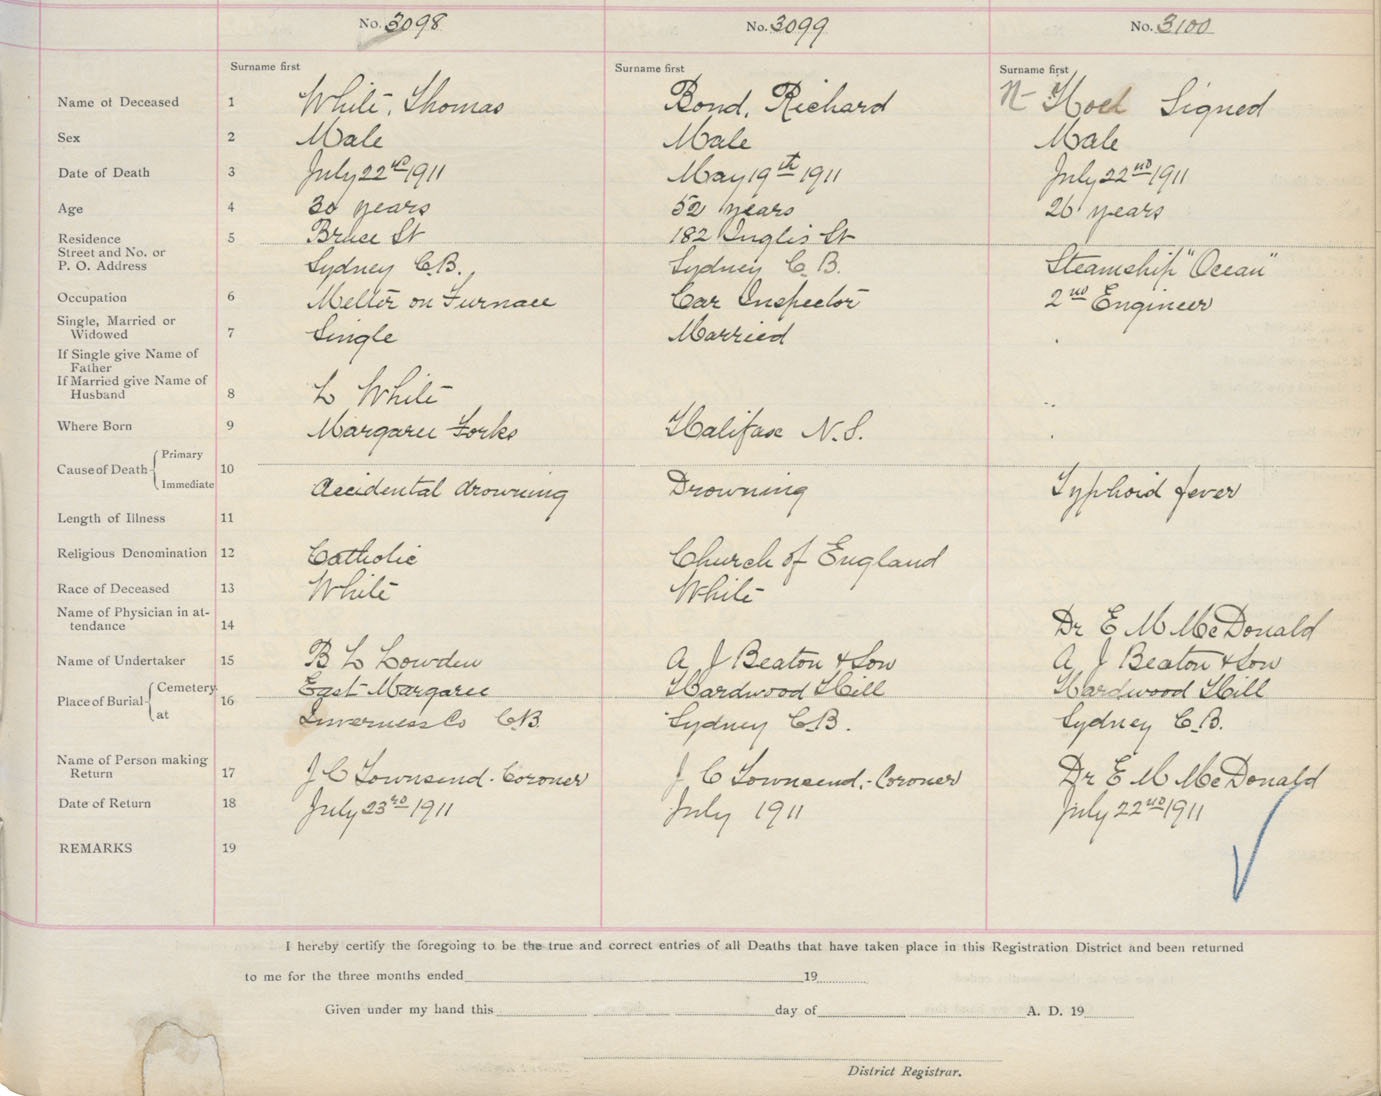 No. 3098 No. 3099 No. 3100
Surname first Surname first Surname first
Name of Deceased 1 White, Thomas Bond, Richard N- Hoel Signed
Sex 2 Male Male Male
Date of Death 3 July 22nd 1911 May 19th 1911 July 22nd 1911
Age 4 30 years 52 years 26 years
Residence 5 Bruce St 182 Inglis St
Street and No. or
P. O. Address Sydney C.B. Sydney C.B. Steamship "Ocean"
Occupation 6 Melter on Furnace Car Inspector 2nd Engineer
Single, Married or
Widowed 7 Single Married
If Single give Name of
Father
If Married give Name of
Husband 8 L White
Where Born 9 Margaree Forks Halifax N.S.
Cause of Death Primary 10
Immediate Accidental drowning Drowning Typhoid fever
Length of Illness 11
Religious Denomination 12 Catholic Church of England
Race of Deceased 13 White White
Name of Physician in at-
tendance 14 Dr E M McDonald
Name of Undertaker 15 B L Lowden A J Beaton & Son A J Beaton & Son
Place of Burial Cemetery 16 East Margaree Hardwood Hill Hardwood Hill
at Inverness Co C.B. Sydney C.B. Sydney C.B.
Name of Person making
Return 17 J C Townsend - Coroner J C Townsend - Coroner Dr E M McDonald
Date of Return 18 July 23rd 1911 July 1911 July 22nd 1911
REMARKS 19
I hereby certify the foregoing to be the true and correct entries of all Deaths that have taken place in this Registration District and been returned
to me for the three months ended 19
Given under my hand this day of A. D. 19
District Registrar.